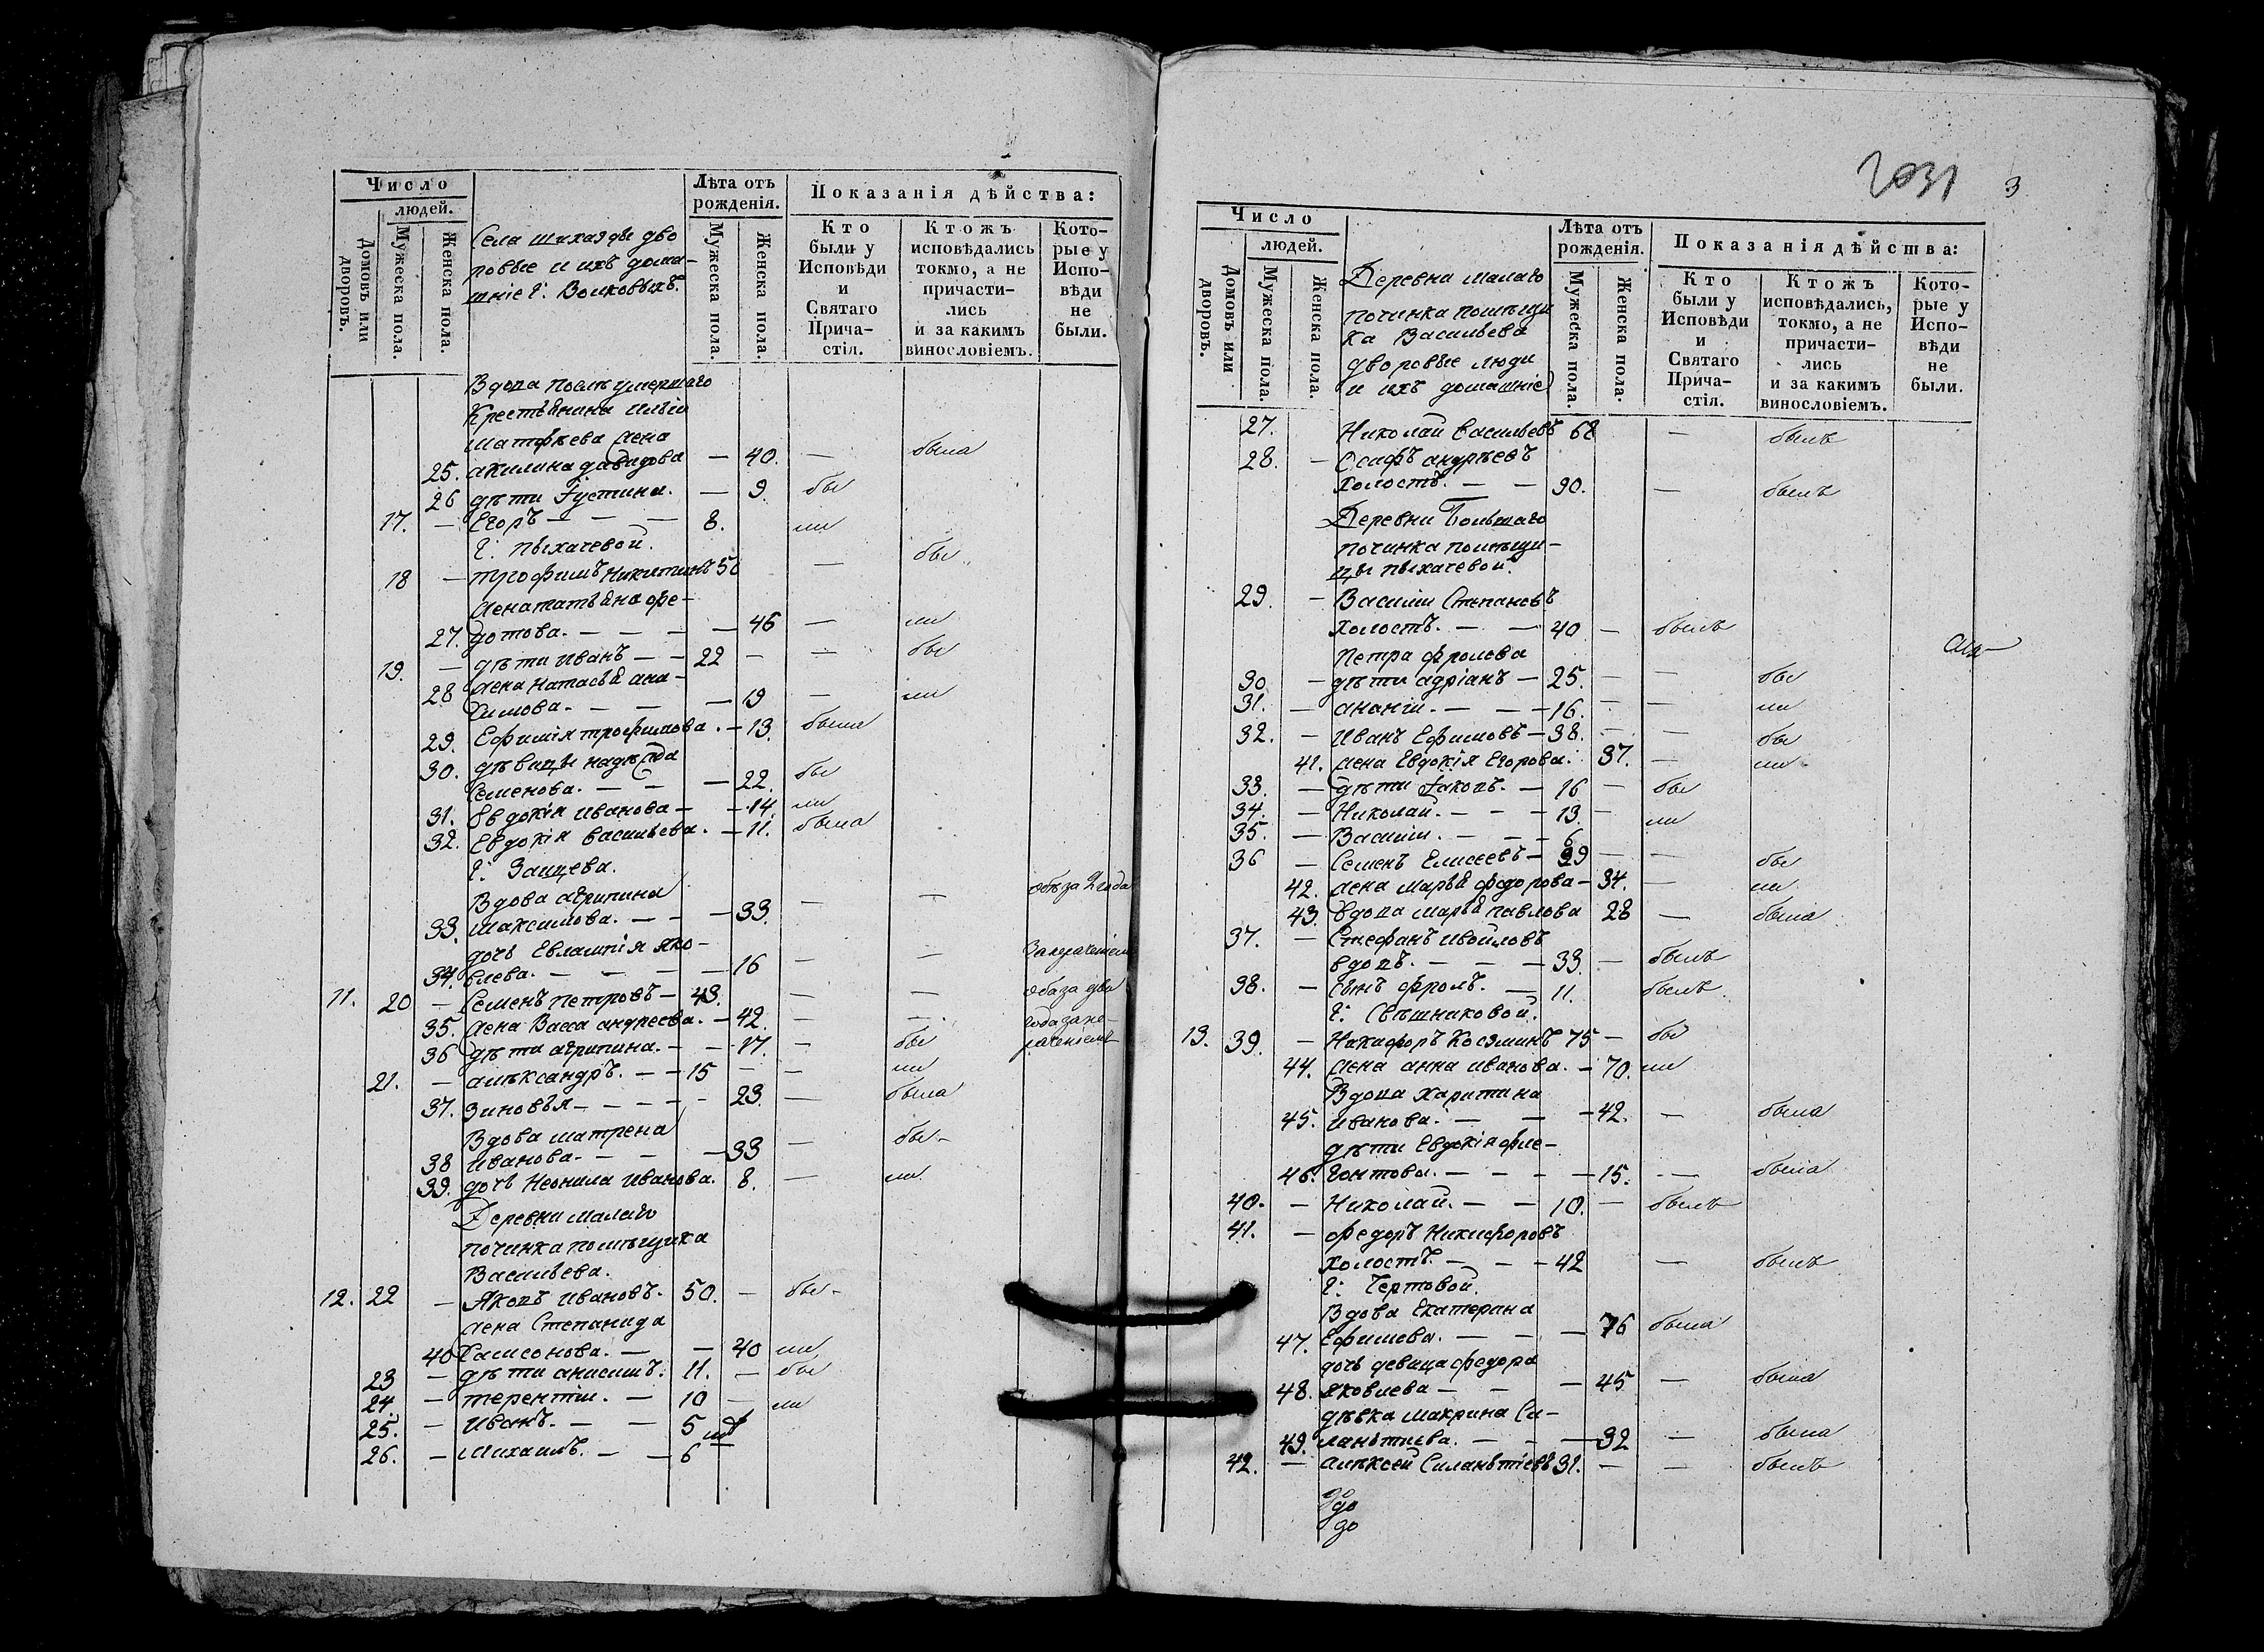 Число
людей.
Домовъ или дворовъ.
Мужеска пола.
Женска пола.
Села дво
ровые и ихъ дома-
шніе Г: Волковыхъ.
Лѣта отъ
рожденія.
Мужеска пола.
Женска пола.
Показанія дѣйства:
Кто
были у
Исповѣди
и
Святаго
Прича-
стія.
Ктожъ
исповѣдались
токмо, а не
причасти-
лись
и за какимъ
винословіемъ.
Кото-
рые у
Испо-
вѣди
не
были.
Вдова послѣ умершаго
Крестьянина Ильи
Матфѣева жена
25. акилина давидова — 40. — была
26 дѣти Густина. — 9. бы
17. — Егоръ — — — 8. ли
Г: пыхачевой.
18 — трофимъ Никитинъ 50 — бы
жена татьяна фе-
27. дотова. — — — — 46 — ли
19. — дѣти Иванъ — — 22 — — бы
28 жена Натасья
кимова. — — — 19 — ли
29. Ефимія трофимова. — 13. была
30. дѣвицы надѣжда
Семенова. — — — 22. бы
31. Евдокія Иванова — — 14. ли
32. Евдокія васильева. — 11. была
Г: Заицева.
Вдова агрипина
33. Максимова. — — — 33. — — оба за 2 года
дочь Евлампія яко-
34. влева. — — — — 16 — — За нераченіем
11. 20 — Семенъ петровъ — 43. — — оба за два
35. жена Васса андреева. — 42. — — года за не-
36 дѣти агрипина. — — 17. — бы раченіемъ
21. — алѣксандръ. — — 15 — — ли
37. Зиновья — — — — — 23. — была
Вдова матрена
38 иванова. — — — 33 — бы —
39. дочь Неонила иванова. 8. — ли
Деревни малаго
починка помѣщика
Васильева.
12. 22 — Яковъ ивановъ. 50. — бы —
жена Степанида
40 Самсонова. — — 40 ли
23 — дѣти анисимъ. 11. — бы
24 — терентіи. — 10 — ли
25. — Иванъ. — — 5
26. — Михаилъ. — — 6
2031
3
Число
людей.
Домовъ или дворовъ.
Мужеска пола.
Женска пола.
Деревни малаго
починка помѣщи
ка Васильева
дворовые люди
и ихъ домашніе
Лѣта отъ
рожденія.
Мужеска пола.
Женска пола.
Показанія дѣйства:
Кто
были у
Исповѣди
и
Святаго
Прича-
стія.
Ктожъ
исповѣдались,
токмо, а не
причасти-
лись
и за какимъ
винословіемъ.
Кото-
рые у
Испо-
вѣди
не
были.
27. Николаи васильевъ 68 — былъ
28. — Осифъ андрѣевъ
холостъ. — — 90. — былъ
Деревни Большаго
починка помѣщи-
цы пыхачевой.
29. — Василіи Степановъ
холостъ. — — 40 — былъ
Петра фролова
30 — дѣти адріанъ — 25. — — бы
31. — ананіи. — — — 16. — — ли
32. — Иванъ Ефимовъ — 38. — — бы
41. жена Евдокія Егорова. 37. — ли
33. — дѣти Іаковъ. — 16 — бы
34. — Николаи. — — — 13. — ли
35. — Василіи. — — — 6
36 — Семенъ Елисеевъ — 39 — — бы
42. жена марья федорова — 34. — ли
43. вдова марья павлова 28 — была
37. — Стефанъ
вдовъ. — — — 33. — былъ
38. — Сынъ фролъ. — 11. былъ
Г: Свѣшниковой.
13. 39. — Никифоръ Козминъ 75 — бы
44. жена анна иванова. — 70. ли
Вдова Харитина
45. иванова. — — — 42. — была
дѣти Евдокія фле-
46. гонтова. — — — — 15. — была
40. — Николай. — — 10. — былъ
41. — федоръ Никифоровъ
холостъ. — — — 42 — былъ
Г: Чертовой.
Вдова Екатерина
47. Ефимева. — — — 76 была
дочь девица федора
48. яковлева — — — 45 — была
дѣвка макрина Си-
49. ланьтиева. — — — 32 — была
42. — алѣксей Силаньтіевъ 31. — — былъ
до
до
до